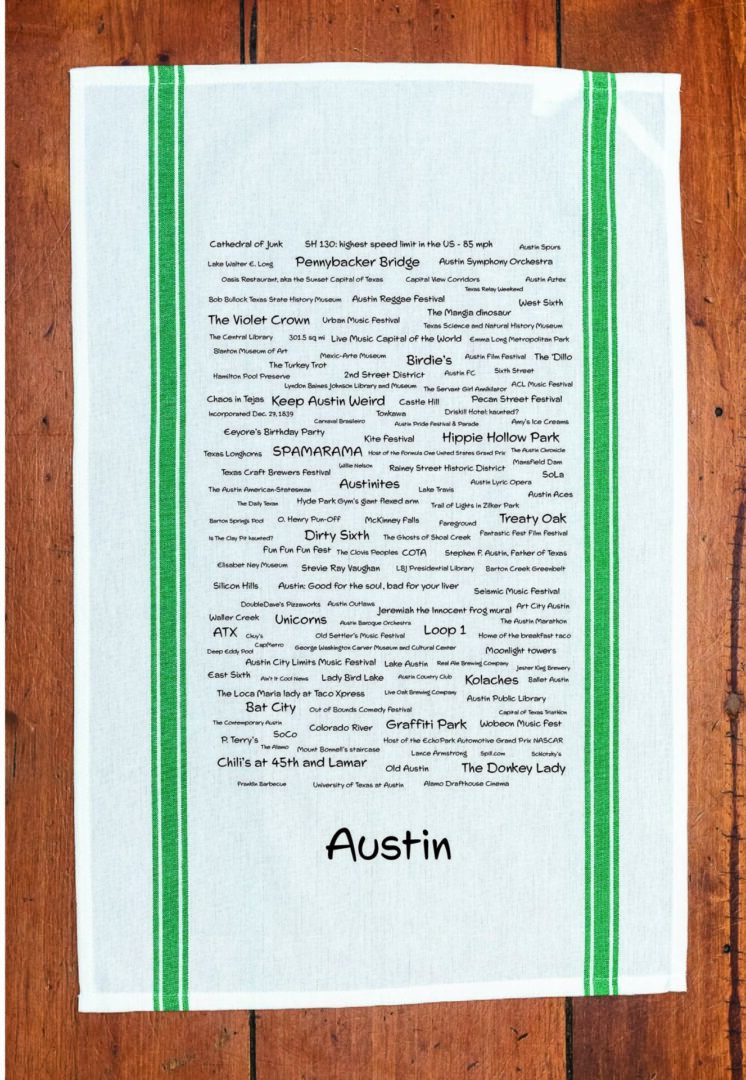 Cathedral of Junk SH 130: highest speed limit in the US - 85 mph Austin Spurs
Lake Walter E. Long Pennybacker Bridge Austin Symphony Orchestra
Oasis Restaurant, aka the Sunset Capital of Texas Capital View Corridors Austin Aztex
Texas Relay Weekend
Bob Bullock Texas State History Museum Austin Reggae Festival West Sixth
The Mangia dinosaur
The Violet Crown Urban Music Festival Texas Science and Natural History Museum
The Central Library 301.5 sq mi Live Music Capital of the World Emma Long Metropolitan Park
Blanton Museum of Art Mexic-Arte Museum Birdie's Austin Film Festival The 'Dillo
The Turkey Trot
Hamilton Pool Preserve 2nd Street District Austin FC Sixth Street
Lyndon Baines Johnson Library and Museum The Servant Girl Annihilator ACL Music Festival
Chaos in Tejas Keep Austin Weird Castle Hill Pecan Street Festival
Incorporated Dec. 27, 1839 Tonkawa Driskill Hotel: haunted?
Carnaval Brasileiro Austin Pride Festival & Parade Amy's Ice Creams
Eeyore's Birthday Party Kite Festival Hippie Hollow Park
Texas Longhorns SPAMARAMA Host of the Formula One United States Grand Prix The Austin Chronicle
Texas Craft Brewers Festival Willie Nelson Rainey Street Historic District Mansfield Dam
SoLa
The Austin American-Statesman Austinites Lake Travis Austin Lyric Opera
Austin Aces
The Daily Texan Hyde Park Gym's giant flexed arm Trail of Lights in Zilker Park
Barton Springs Pool O. Henry Pun-Off McKinney Falls Fareground Treaty Oak
Is The Clay Pit haunted? Dirty Sixth The Ghosts of Shoal Creek Fantastic Fest Film Festival
Fun Fun Fun Fest The Clovis Peoples COTA Stephen F. Austin, Father of Texas
Elisabet Ney Museum Stevie Ray Vaughan LBJ Presidential Library Barton Creek Greenbelt
Silicon Hills Austin: Good for the soul, bad for your liver Seismic Music Festival
DoubleDave's Pizzaworks Austin Outlaws Jeremiah the Innocent frog mural Art City Austin
Waller Creek Unicorns Austin Baroque Orchestra The Austin Marathon
ATX Chuy's Old Settler's Music Festival Loop 1 Home of the breakfast taco
Deep Eddy Pool CapMetro George Washington Carver Museum and Cultural Center Moonlight towers
Austin City Limits Music Festival Lake Austin Real Ale Brewing Company Jester King Brewery
East Sixth Ain't It Cool News Lady Bird Lake Austin Country Club Kolaches Ballet Austin
The Loca Maria lady at Taco Xpress Live Oak Brewing Company Austin Public Library
Bat City Out of Bounds Comedy Festival Capital of Texas Triathlon
The Contemporary Austin Colorado River Graffiti Park Wobeon Music Fest
P. Terry's SoCo Host of the EchoPark Automotive Grand Prix NASCAR
The Alamo Mount Bonnell's staircase Lance Armstrong Spill.com Schlotzky's
Chili's at 45th and Lamar Old Austin The Donkey Lady
Franklin Barbecue University of Texas at Austin Alamo Drafthouse Cinema
Austin